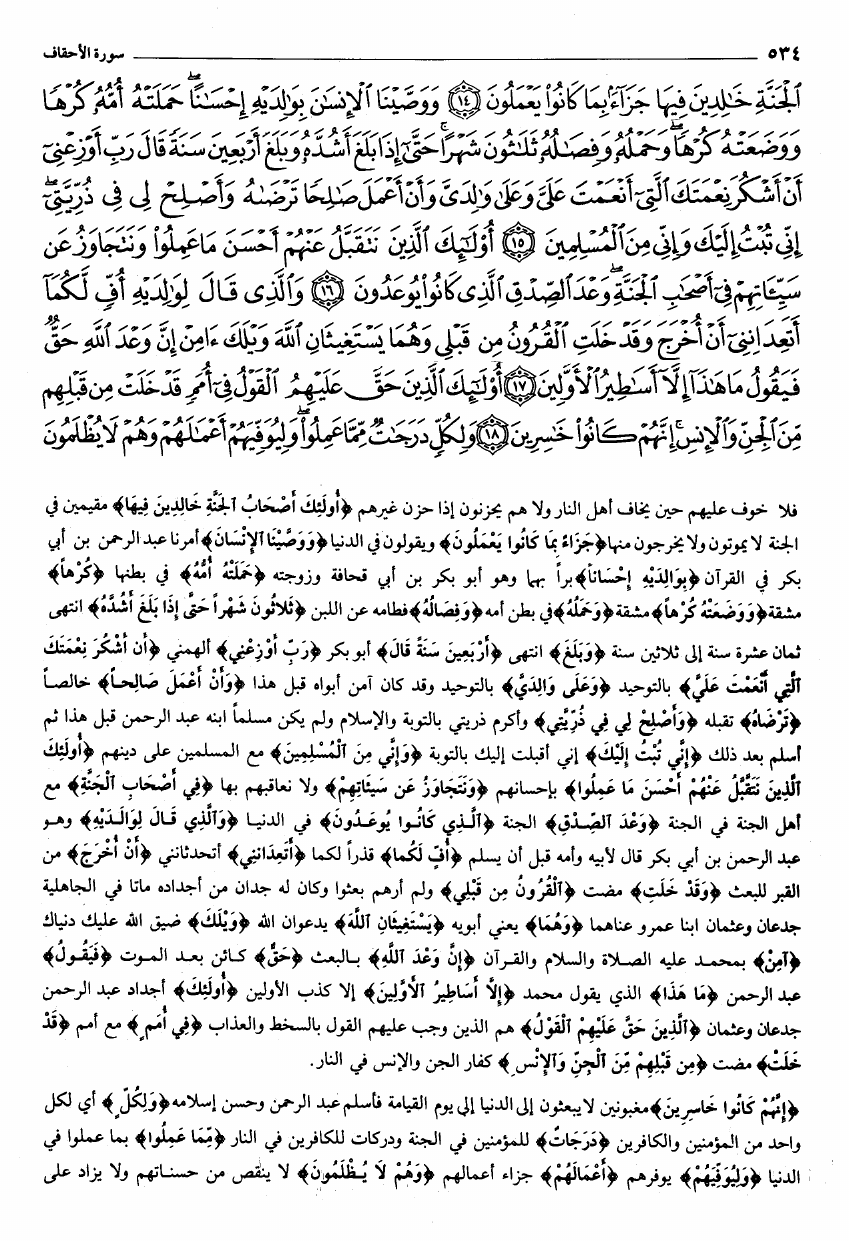 ٥٣٤ سورة الأحقاف
ٱلْجَنَّةِ خَٰلِدِينَ فِيهَا جَزَآءًۢ بِمَا كَانُوا۟ يَعْمَلُونَ ﴿١٤﴾ وَوَصَّيْنَا ٱلْإِنسَٰنَ بِوَٰلِدَيْهِ إِحْسَٰنًا ۖ حَمَلَتْهُ أُمُّهُۥ كُرْهًا
وَوَضَعَتْهُ كُرْهًا ۖ وَحَمْلُهُۥ وَفِصَٰلُهُۥ ثَلَٰثُونَ شَهْرًا ۚ حَتَّىٰٓ إِذَا بَلَغَ أَشُدَّهُۥ وَبَلَغَ أَرْبَعِينَ سَنَةً قَالَ رَبِّ أَوْزِعْنِىٓ
أَنْ أَشْكُرَ نِعْمَتَكَ ٱلَّتِىٓ أَنْعَمْتَ عَلَىَّ وَعَلَىٰ وَٰلِدَىَّ وَأَنْ أَعْمَلَ صَٰلِحًا تَرْضَىٰهُ وَأَصْلِحْ لِى فِى ذُرِّيَّتِىٓ ۖ
إِنِّى تُبْتُ إِلَيْكَ وَإِنِّى مِنَ ٱلْمُسْلِمِينَ ﴿١٥﴾ أُو۟لَٰٓئِكَ ٱلَّذِينَ نَتَقَبَّلُ عَنْهُمْ أَحْسَنَ مَا عَمِلُوا۟ وَنَتَجَاوَزُ عَن
سَيِّـَٔاتِهِمْ فِىٓ أَصْحَٰبِ ٱلْجَنَّةِ ۖ وَعْدَ ٱلصِّدْقِ ٱلَّذِى كَانُوا۟ يُوعَدُونَ ﴿١٦﴾ وَٱلَّذِى قَالَ لِوَٰلِدَيْهِ أُفٍّ لَّكُمَآ
أَتَعِدَانِنِىٓ أَنْ أُخْرَجَ وَقَدْ خَلَتِ ٱلْقُرُونُ مِن قَبْلِى وَهُمَا يَسْتَغِيثَانِ ٱللَّهَ وَيْلَكَ ءَامِنْ إِنَّ وَعْدَ ٱللَّهِ حَقٌّ
فَيَقُولُ مَا هَٰذَآ إِلَّآ أَسَٰطِيرُ ٱلْأَوَّلِينَ ﴿١٧﴾ أُو۟لَٰٓئِكَ ٱلَّذِينَ حَقَّ عَلَيْهِمُ ٱلْقَوْلُ فِىٓ أُمَمٍ قَدْ خَلَتْ مِن قَبْلِهِم
مِّنَ ٱلْجِنِّ وَٱلْإِنسِ ۖ إِنَّهُمْ كَانُوا۟ خَٰسِرِينَ ﴿١٨﴾ وَلِكُلٍّ دَرَجَٰتٌ مِّمَّا عَمِلُوا۟ ۖ وَلِيُوَفِّيَهُمْ أَعْمَٰلَهُمْ وَهُمْ لَا يُظْلَمُونَ
فلا خوف عليهم حين يخاف أهل النار ولا هم يحزنون إذا حزن غيرهم ﴿أُولَئِكَ أَصْحَابُ ٱلجَنَّةِ خَالِدِينَ فِيهَا﴾ مقيمين في
الجنة لا يموتون ولا يخرجون منها ﴿جَزَاءً بِمَا كَانُوا يَعْمَلُونَ﴾ ويقولون في الدنيا ﴿وَوَصَّيْنَا ٱلإِنْسَانَ﴾ أمرنا عبد الرحمن بن أبي
بكر في القرآن ﴿بِوَالِدَيْهِ إِحْسَاناً﴾ براً بهما وهو أبو بكر بن أبي قحافة وزوجته ﴿حَمَلَتْهُ أُمُّهُ﴾ في بطنها ﴿كُرْهاً﴾
مشقة ﴿وَوَضَعَتْهُ كُرْهاً﴾ مشقة ﴿وَحَمْلُهُ﴾ في بطن أمه ﴿وَفِصَالُهُ﴾ فطامه عن اللبن ﴿ثَلاَثُونَ شَهْراً حَتَّى إِذَا بَلَغَ أَشُدَّهُ﴾ انتهى
ثمان عشرة سنة إلى ثلاثين سنة ﴿وَبَلَغَ﴾ انتهى ﴿أَرْبَعِينَ سَنَةً قَالَ﴾ أبو بكر ﴿رَبِّ أَوْزِعْنِي﴾ ألهمني ﴿أن أَشْكُرَ نِعْمَتَكَ
ٱلَّتِي أَنْعَمْتَ عَلَيَّ﴾ بالتوحيد ﴿وَعَلَى وَالِدَيَّ﴾ بالتوحيد وقد كان آمن أبواه قبل هذا ﴿وَأَنْ أَعْمَلَ صَالِحاً﴾ خالصاً
﴿تَرْضَاهُ﴾ تقبله ﴿وَأَصْلِحْ لِي فِي ذُرِّيَّتِي﴾ وأكرم ذريتي بالتوبة والإسلام ولم يكن مسلماً ابنه عبد الرحمن قبل هذا ثم
أسلم بعد ذلك ﴿إِنِّي تُبْتُ إِلَيْكَ﴾ إني أقبلت إليك بالتوبة ﴿وَإِنِّي مِنَ ٱلْمُسْلِمِينَ﴾ مع المسلمين على دينهم ﴿أُولَئِكَ
ٱلَّذِينَ نَتَقَبَّلُ عَنْهُمْ أَحْسَنَ مَا عَمِلُوا﴾ بإحسانهم ﴿وَنَتَجَاوَزُ عَن سَيِّئَاتِهِمْ﴾ ولا نعاقبهم بها ﴿فِي أَصْحَابِ ٱلْجَنَّةِ﴾ مع
أهل الجنة في الجنة ﴿وَعْدَ ٱلصِّدْقِ﴾ الجنة ﴿ٱلَّذِي كَانُوا يُوعَدُونَ﴾ في الدنيا ﴿وَٱلَّذِي قَالَ لِوَالَدَيْهِ﴾ وهو
عبد الرحمن بن أبي بكر قال لأبيه وأمه قبل أن يسلم ﴿أُفٍّ لَكُمَا﴾ قذراً لكما ﴿أَتَعِدَانِنِي﴾ أتحدثانني ﴿أَنْ أُخْرَجَ﴾ من
القبر للبعث ﴿وَقَدْ خَلَتِ﴾ مضت ﴿ٱلْقُرُونُ مِن قَبْلِي﴾ ولم أرهم بعثوا وكان له جدان من أجداده ماتا في الجاهلية
جدعان وعثمان ابنا عمرو عناهما ﴿وَهُمَا﴾ يعني أبويه ﴿يَسْتَغِيثَانِ ٱللَّهَ﴾ يدعوان الله ﴿وَيْلَكَ﴾ ضيق الله عليك دنياك
﴿آمِنْ﴾ بمحمد عليه الصلاة والسلام والقرآن ﴿إِنَّ وَعْدَ ٱللَّهِ﴾ بالبعث ﴿حَقٌّ﴾ كائن بعد الموت ﴿فَيَقُولُ﴾
عبد الرحمن ﴿مَا هَذَا﴾ الذي يقول محمد ﴿إِلاَّ أَسَاطِيرُ ٱلأَوَّلِينَ﴾ إلا كذب الأولين ﴿أُولَئِكَ﴾ أجداد عبد الرحمن
جدعان وعثمان ﴿ٱلَّذِينَ حَقَّ عَلَيْهِمُ ٱلْقَوْلُ﴾ هم الذين وجب عليهم القول بالسخط والعذاب ﴿فِي أُمَمٍ﴾ مع أمم ﴿قَدْ
خَلَتْ﴾ مضت ﴿مِن قَبْلِهِمْ مِّنَ ٱلْجِنِّ وَٱلإِنْسِ﴾ كفار الجن والإنس في النار.
﴿إِنَّهُمْ كَانُوا خَاسِرِينَ﴾ مغبونين لا يبعثون إلى الدنيا إلى يوم القيامة فأسلم عبد الرحمن وحسن إسلامه ﴿وَلِكُلٍّ﴾ أي لكل
واحد من المؤمنين والكافرين ﴿دَرَجَاتٌ﴾ للمؤمنين في الجنة ودركات للكافرين في النار ﴿مِّمَّا عَمِلُوا﴾ بما عملوا في
الدنيا ﴿وَلِيُوَفِّيَهُمْ﴾ يوفرهم ﴿أَعْمَالَهُمْ﴾ جزاء أعمالهم ﴿وَهُمْ لاَ يُظْلَمُونَ﴾ لا ينقص من حسناتهم ولا يزاد على